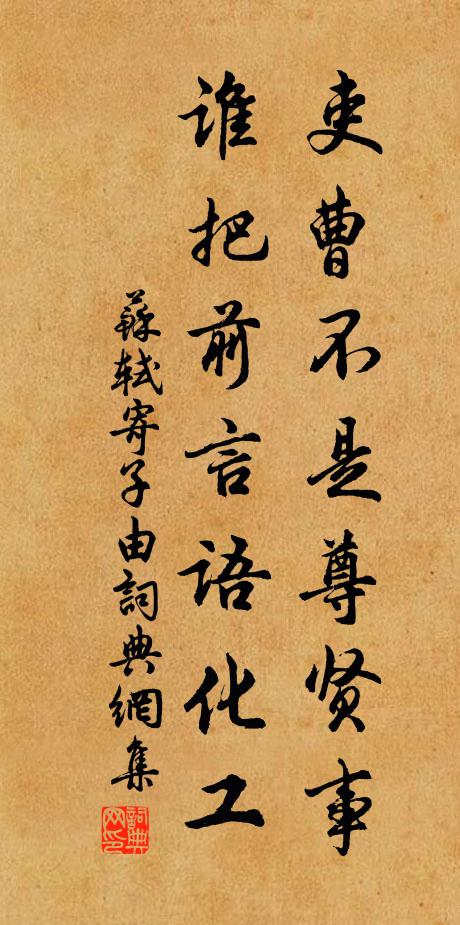 吏曹不是尊贤事
谁把前言语化工
蘇轼寄子由詞典網集
詞典网印